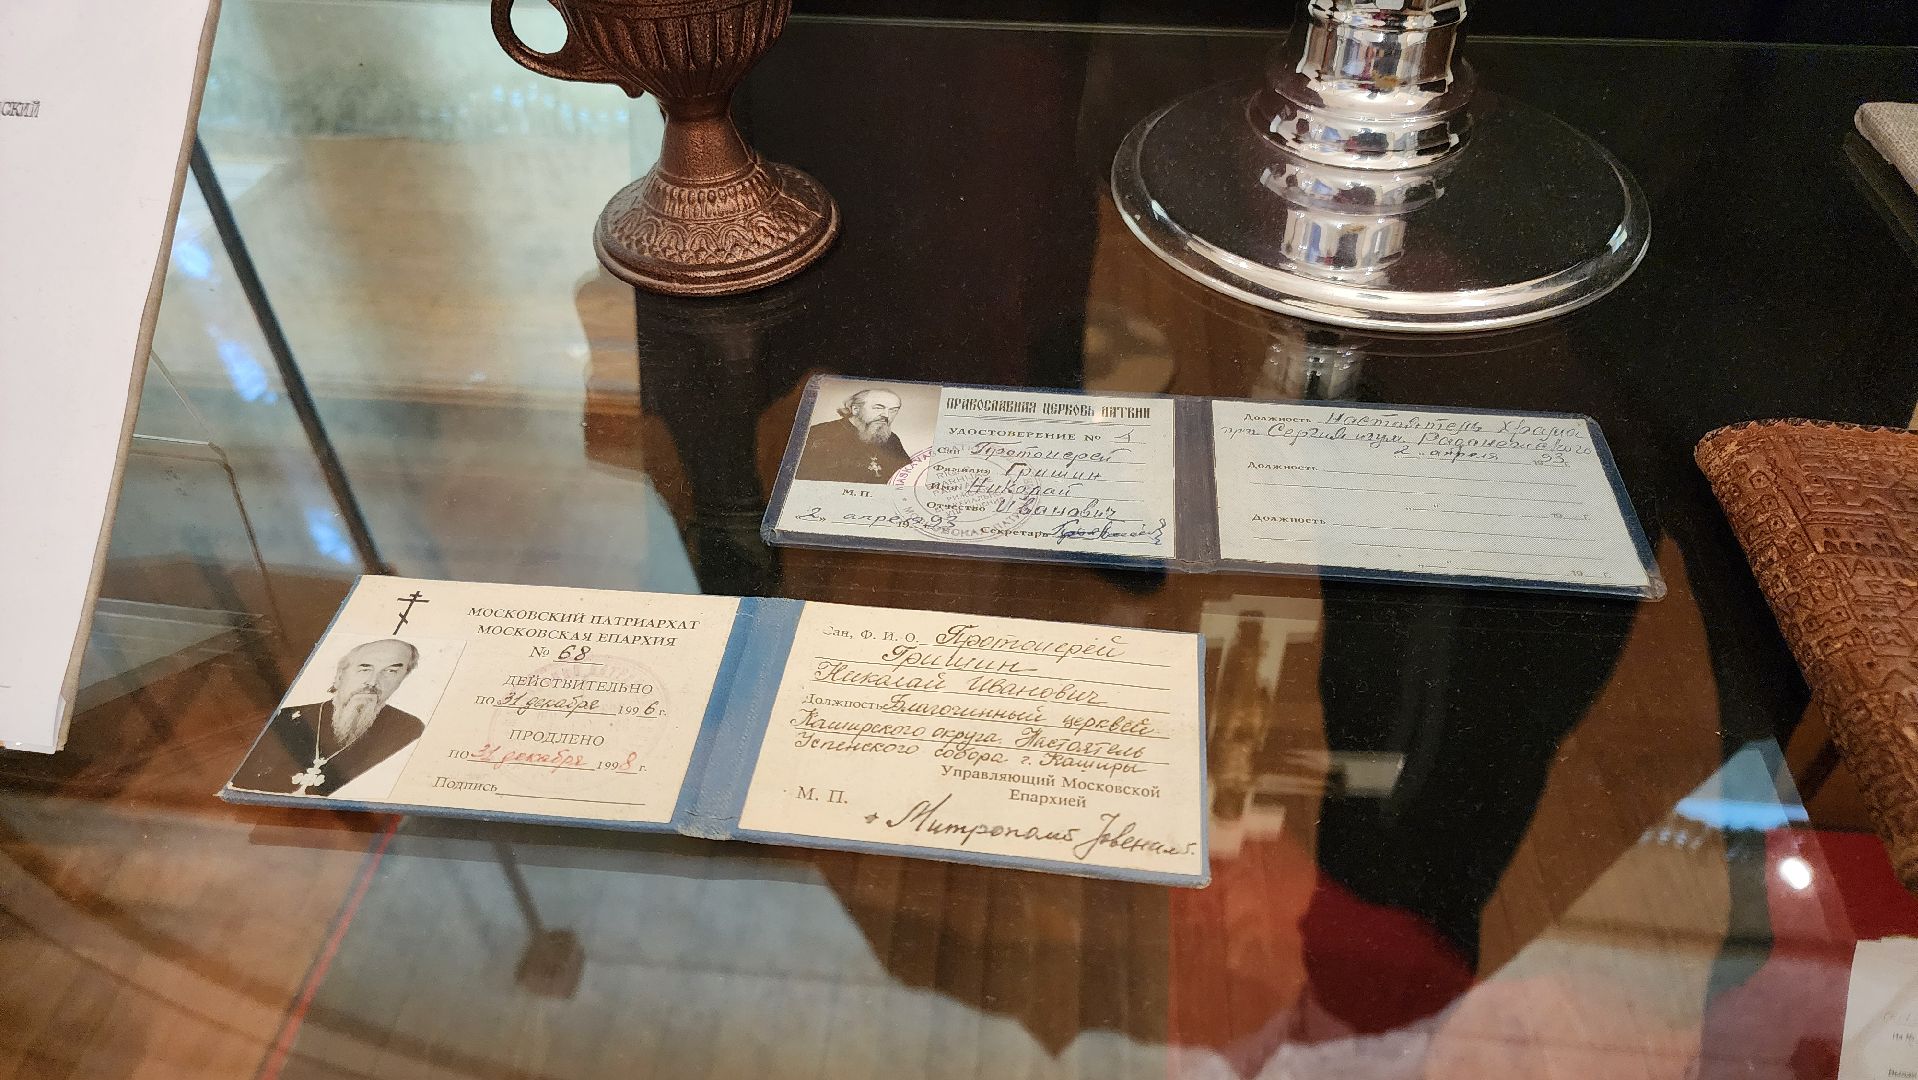 ский
ПРАВОСЛАВНАЯ ЦЕРКОВЬ ЛАТВИИ
УДОСТОВЕРЕНИЕ №
Сан Протоиерей
Фамилия Гришин
Имя Николай
Отчество Иванович
М. П.
"2" апреля 1993
Секретарь
Должность Настоятель храма
прп Сергия игум. Радонежского
2 апреля 1993
Должность
19 г.
Должность
19 г.
МОСКОВСКИЙ ПАТРИАРХАТ
МОСКОВСКАЯ ЕПАРХИЯ
№ 68
ДЕЙСТВИТЕЛЬНО
ПО 31 декабря 1996 г.
ПРОДЛЕНО
ПО 31 декабря 1998 г.
Подпись
Сан, Ф. И. О. Протоиерей
Гришин
Николай Иванович
Должность Благочинный церквей
Каширского округа, Настоятель
Успенского собора г. Каширы
Управляющий Московской
Епархией
М. П.
+ Митрополит Ювеналий